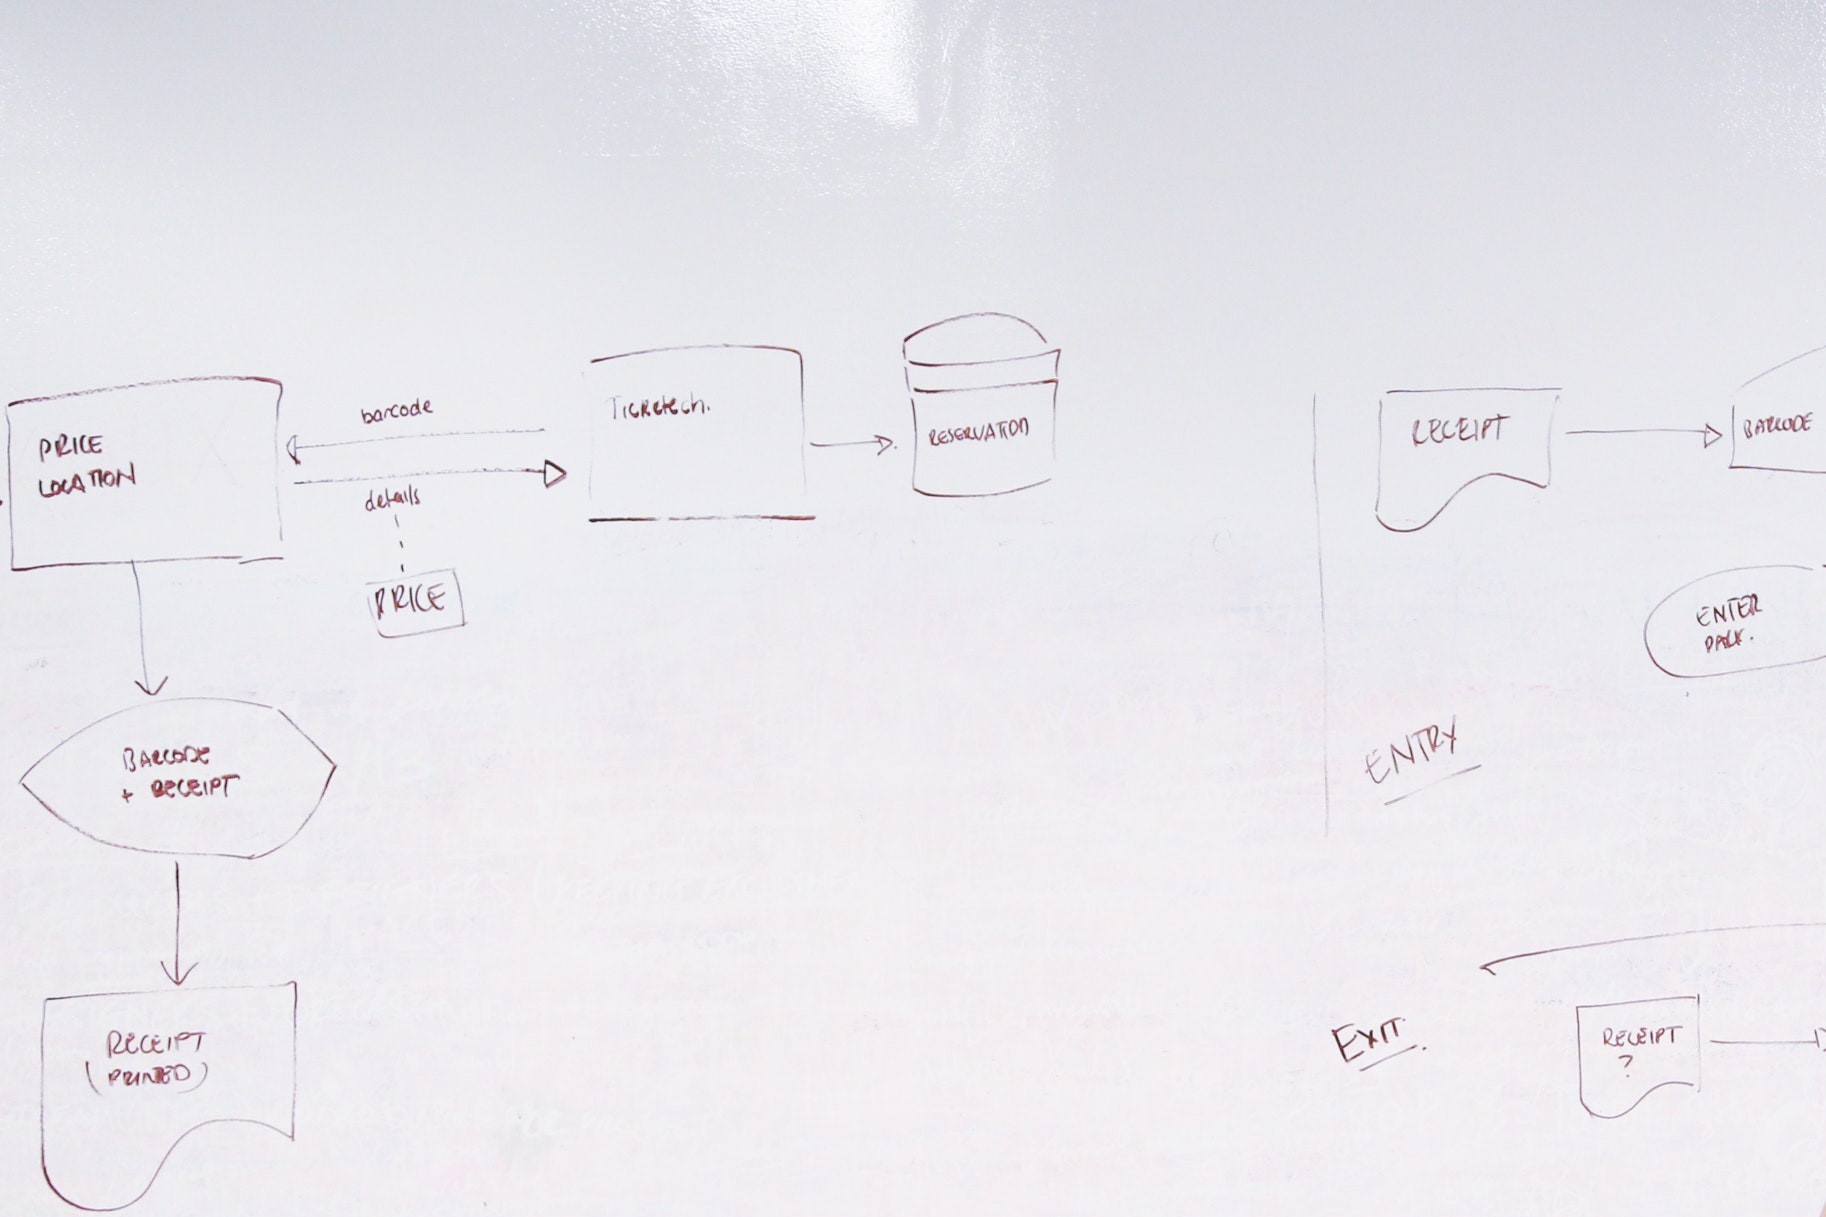 PRICE
LOCATION
barcode
details
PRICE
Ticketech.
RESERVATION
BARCODE
+ RECEIPT
RECEIPT
(PRINTED)
RECEIPT
BARCODE
ENTER
PARK.
ENTRY
EXIT.
RECEIPT
?